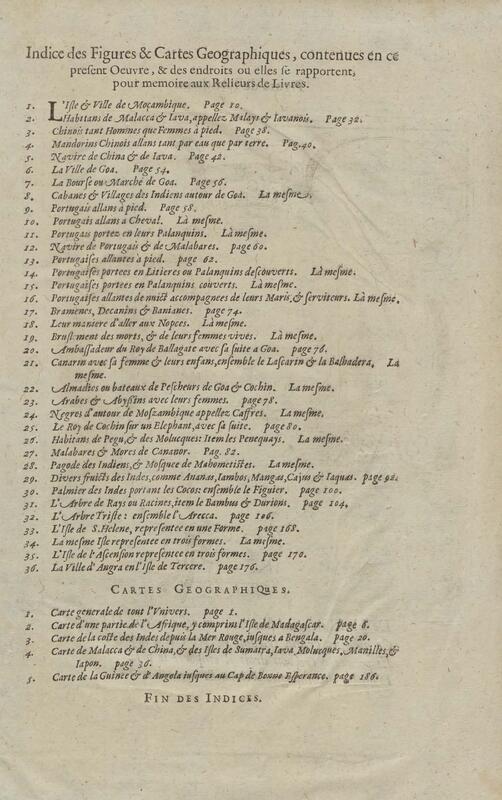 Indice des Figures & Cartes Geographiques, contenues en ce
present Oeuvre, & des endroits ou elles se rapportent,
pour memoire aux Relieurs de Livres.
1. L'Isle & Ville de Moçambique. Page 10.
2. Habitans de Malacca & Iava, appellez Malays & Iavanois. Page 32.
3. Chinois tant Hommes que Femmes a pied. Page 38.
4. Mandorins Chinois allans tant par eau que par terre. Pag. 40.
5. Navire de China & de Iava. Page 42.
6. La Ville de Goa. Page 54.
7. La Bourse ou Marché de Goa. Page 56.
8. Cabanes & Villages des Indiens autour de Goa. La mesme.
9. Portugais allans à pied. Page 58.
10. Portugais allans a Cheval. Là mesme.
11. Portugais portez en leurs Palanquins. Là mesme.
12. Navire de Portugais & de Malabares. page 60.
13. Portugaises allantes à pied. page 62.
14. Portugaises portees en Litieres ou Palanquins descouverts. Là mesme.
15. Portugaises portées en Palanquins couverts. Là mesme.
16. Portugaises allantes de nuict accompagnees de leurs Maris, & serviteurs. Là mesme.
17. Bramenes, Decanins & Banianes. page 74.
18. Leur maniere d'aller aux Nopces. Là mesme.
19. Bruslement des morts, & de leurs femmes vives. Là mesme.
20. Ambassadeur du Roy de Ballagate avec sa suite a Goa. page 76.
21. Canarin avec sa femme & leurs enfans, ensemble le Lascarin & la Balhadera. La
mesme.
22. Almadies ou bateaux de Pescheurs de Goa & Cochin. La mesme.
23. Arabes & Abyssins avec leurs femmes. page 78.
24. Negres d'autour de Moszambique appellez Caffres. La mesme.
25. Le Roy de Cochin sur un Elephant, avec sa suite. page 80.
26. Habitans de Pegu, & des Molucques: Item les Penequays. La mesme.
27. Malabares & Mores de Cananor. Pag. 82.
28. Pagode des Indiens, & Mosquee de Mahometistes. La mesme.
29. Divers fruicts des Indes, comme Ananas, Iambos, Mangas, Cajus & Iaquas. page 92.
30. Palmier des Indes portant les Cocos: ensemble le Figuier. page 100.
31. L'Arbre de Rays ou Racines, item le Bambus & Durions. page 104.
32. L'Arbre Triste: ensemble l'Arecca. page 106.
33. L'Isle de S. Helene, representee en une Forme. page 168.
34. La mesme Isle representee en trois formes. La mesme.
35. L'Isle de l'Ascension representee en trois formes. page 170.
36. La Ville d'Angra en l'Isle de Tercere. page 176.
CARTES GEOGRAPHIQUES.
1. Carte generale de tout l'Vnivers. page 1.
2. Carte d'une partie de l'Afrique, y comprins l'Isle de Madagascar. page 8.
3. Carte de la coste des Indes depuis la Mer Rouge, iusques a Bengala. page 20.
4. Carte de Malacca & de China, & des Isles de Sumatra, Iava, Molucques, Manilles, &
Iapon. page 36.
5. Carte de la Guinee & d'Angola iusques au Cap de Bonne Esperance. page 186.
FIN DES INDICES.